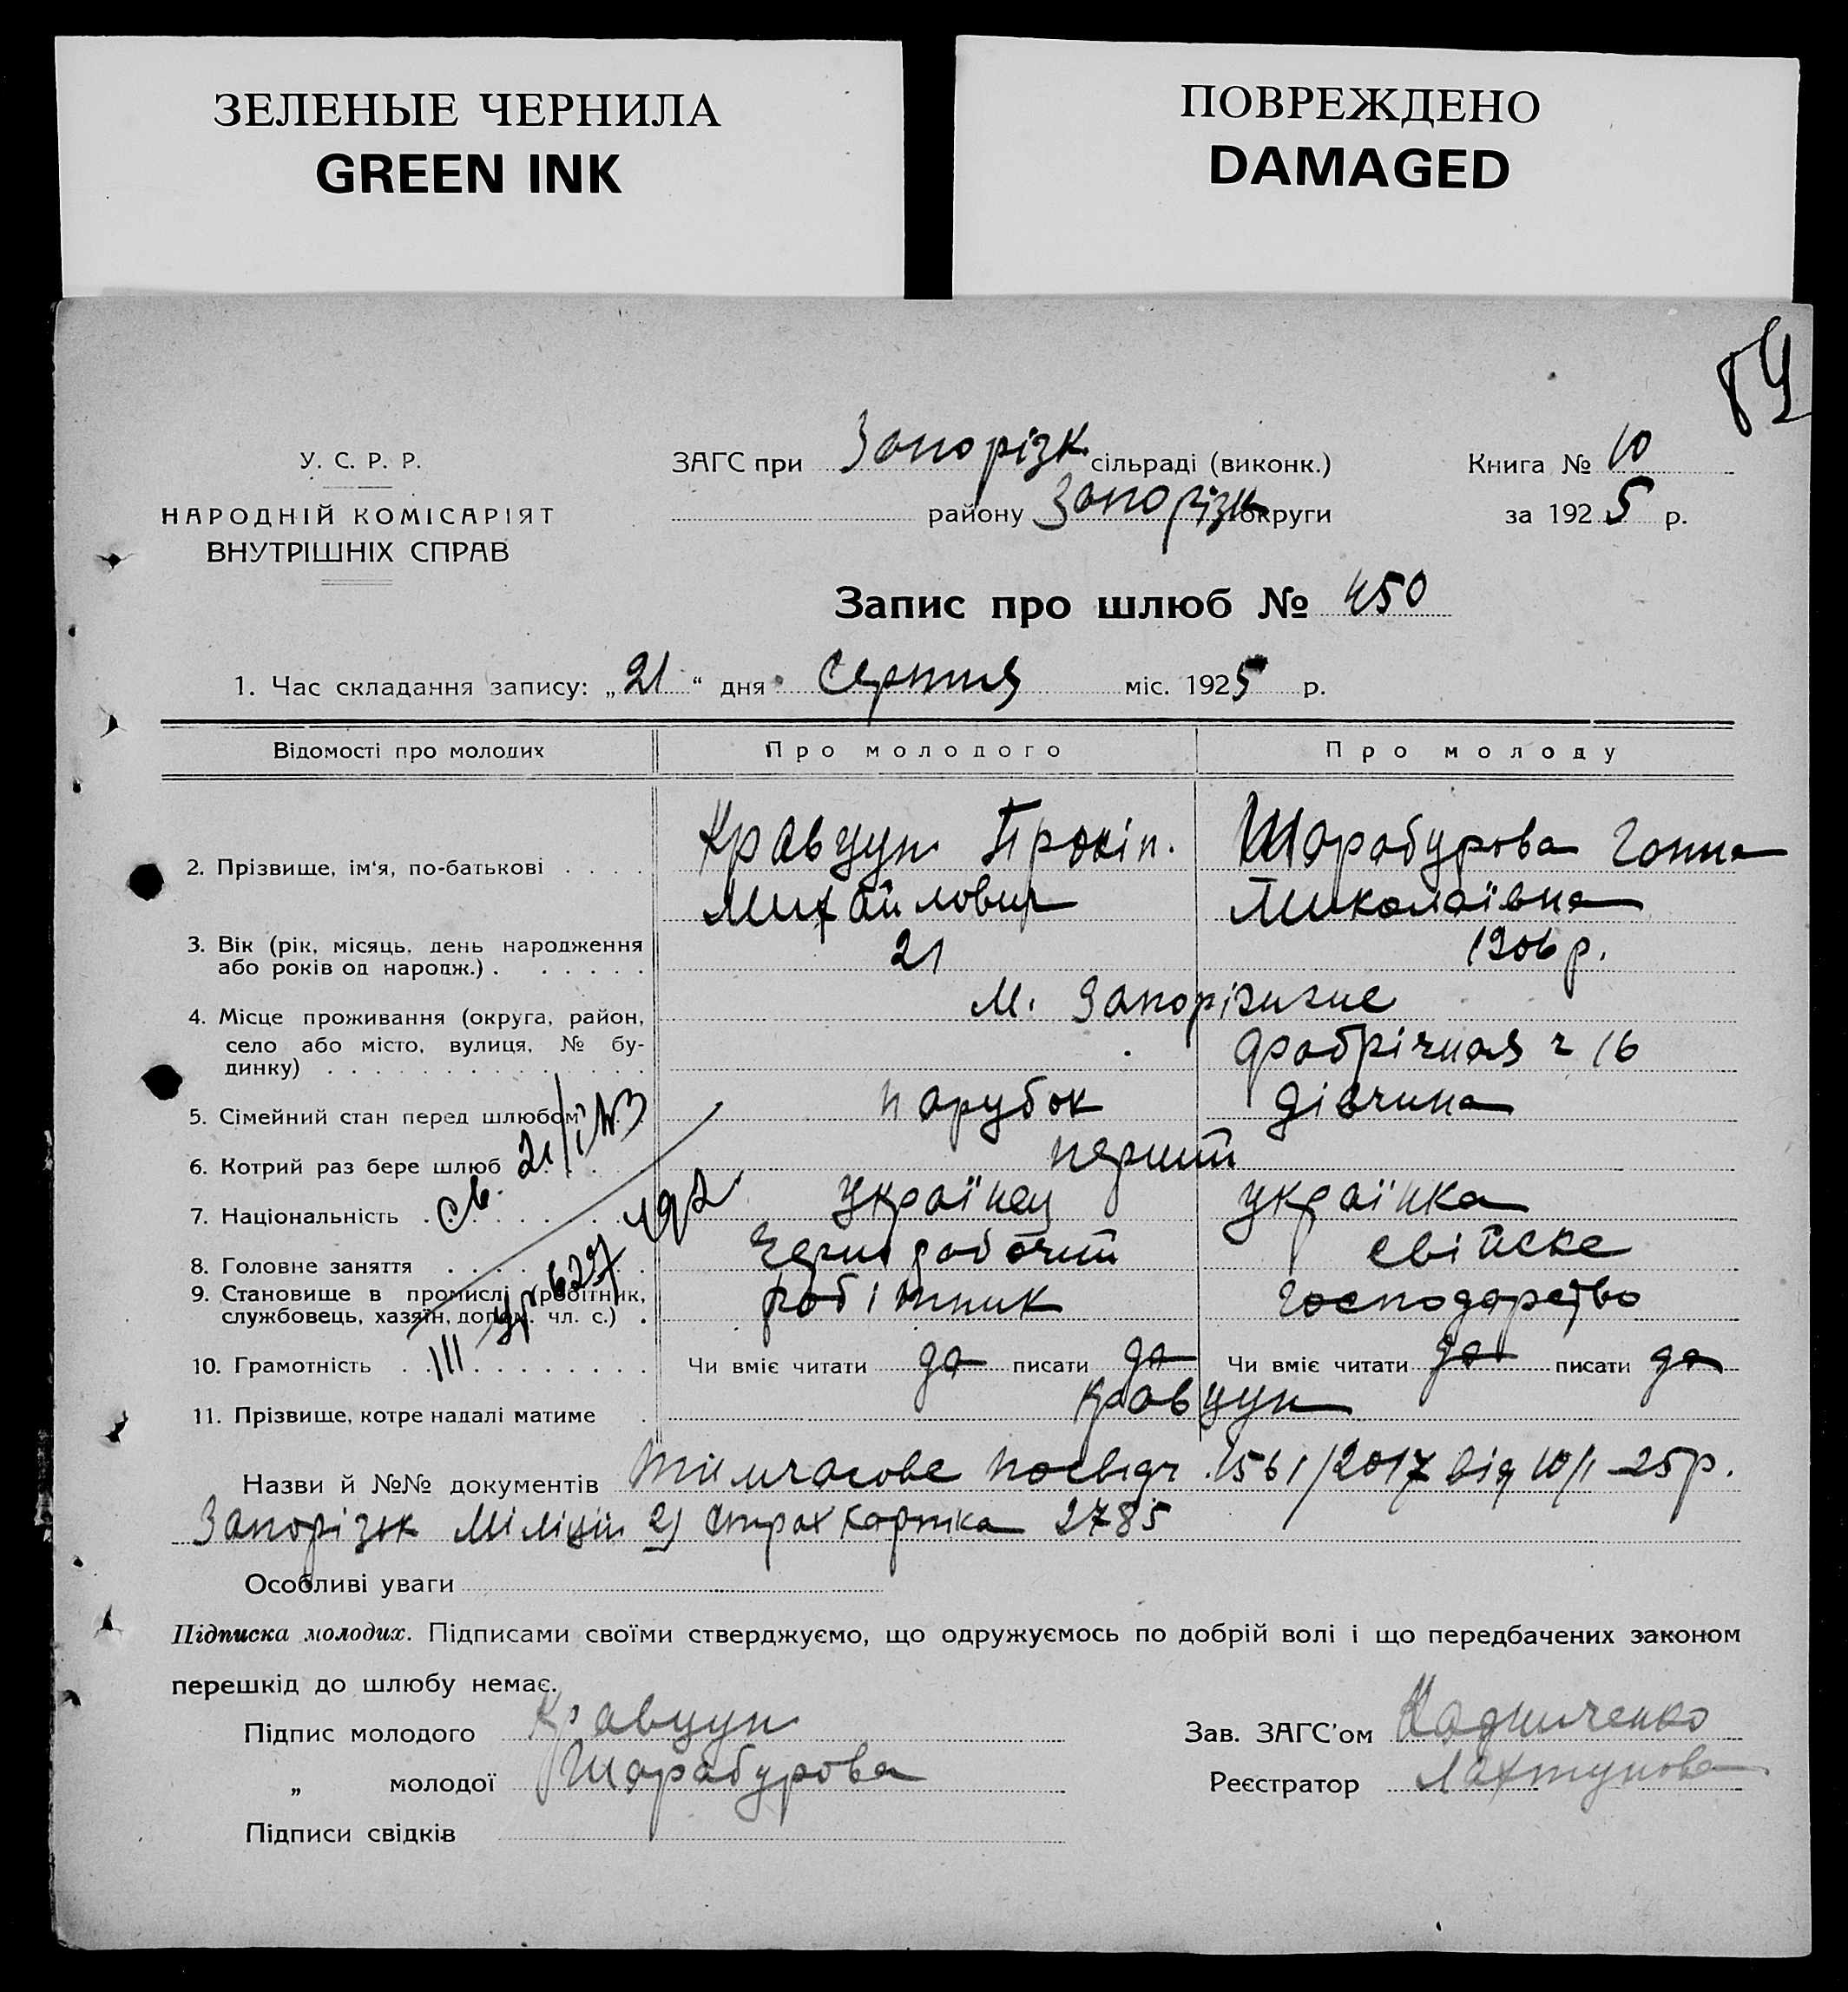 ЗЕЛЕНЫЕ ЧЕРНИЛА
GREEN INK
ПОВРЕЖДЕНО
DAMAGED
У. С. Р. Р.
НАРОДНІЙ КОМІСАРІЯТ
ВНУТРІШНІХ СПРАВ
ЗАГС при Запорізк. сільраді (виконк.)
району Запорізк округи
Книга № 10
за 1925 р.
Запис про шлюб № 450
1. Час складання запису: „21“ дня серпня міс. 1925 р.
Відомості про молодих Про молодого Про молоду
2. Прізвище, ім‘я, по-батькові Кравцун Прокіп. Шарабурова Ганна
Михайлович Миколаївна
3. Вік (рік, місяць, день народження 21 1906 р.
або років од народж.)
4. Місце проживання (округа, район, М. Запоріжжє
село або місто, вулиця, № бу- Фабрічная 16
динку)
5. Сімейний стан перед шлюбом парубок дівчина
6. Котрий раз бере шлюб перший
7. Національність українец українка
8. Головне заняття Чернорабочий свійске
9. Становище в промислі (робітник, робітник господарство
службовець, хазяїн, допом. чл. с.)
10. Грамотність Чи вміє читати да писати да Чи вміє читати да писати да
11. Прізвище, котре надалі матиме Кравцун
Назви й №№ документів Тимчасове посвідч. 1561/2017 від 10/I-25 р.
Запорізьк Міліції 2) Страх картка 2785
Особливі уваги
Підписка молодих. Підписами своїми стверджуємо, що одружуємось по добрій волі і що передбачених законом
перешкід до шлюбу немає.
Підпис молодого Кравцун
„ молодої Шарабурова
Підписи свідків
Зав. ЗАГС’ом
Реєстратор Лахтунова